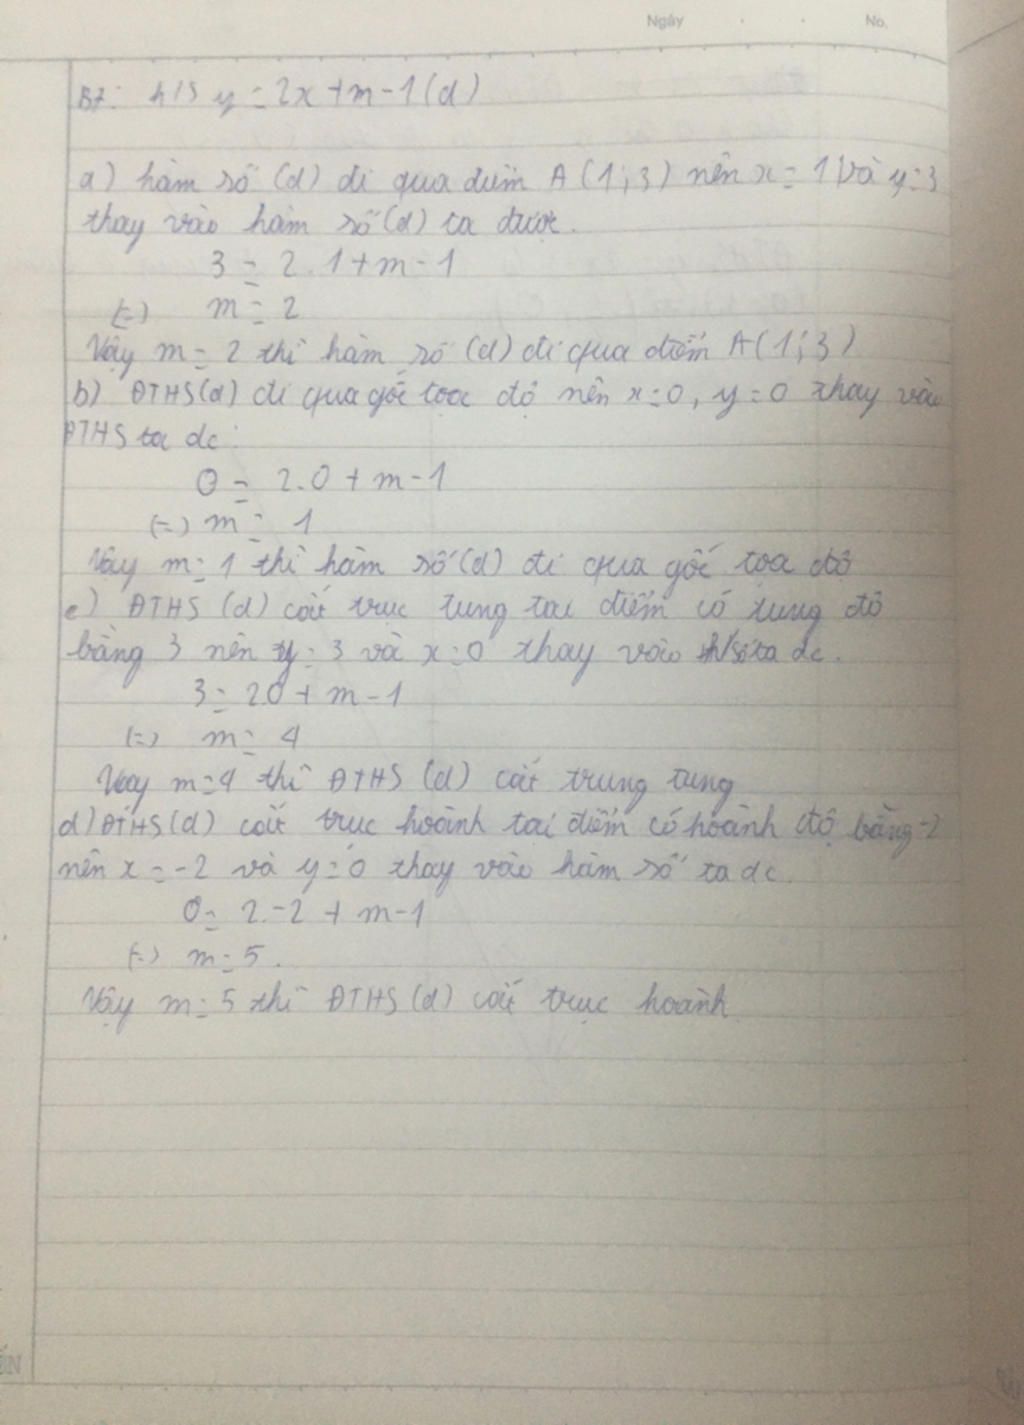 Ngày . . No.
B7: h/s y = 2x + m - 1 (d)
a) hàm số (d) đi qua điểm A (1; 3) nên x = 1 và y = 3
thay vào hàm số (d) ta được.
3 = 2.1 + m - 1
(=) m = 2
Vậy m = 2 thì hàm số (d) đi qua điểm A(1; 3)
b) ĐTHS(d) đi qua gốc tọa độ nên x = 0, y = 0 thay vào
ĐTHS ta dc :
0 = 2.0 + m - 1
(=) m = 1
Vậy m = 1 thì hàm số (d) đi qua gốc tọa đô
c) ĐTHS (d) cắt trục tung tại điểm có tung đô
bằng 3 nên y = 3 và x = 0 thay vào h/số ta dc.
3 = 2.0 + m - 1
(=) m = 4
Vậy m = 4 thì ĐTHS (d) cắt trung tung
d) ĐTHS (d) cắt trục hoành tại điểm có hoành độ bằng -2
nên x = -2 và y = 0 thay vào hàm số ta dc.
0 = 2.-2 + m - 1
(=) m = 5.
Vậy m = 5 thì ĐTHS (d) cắt trục hoành